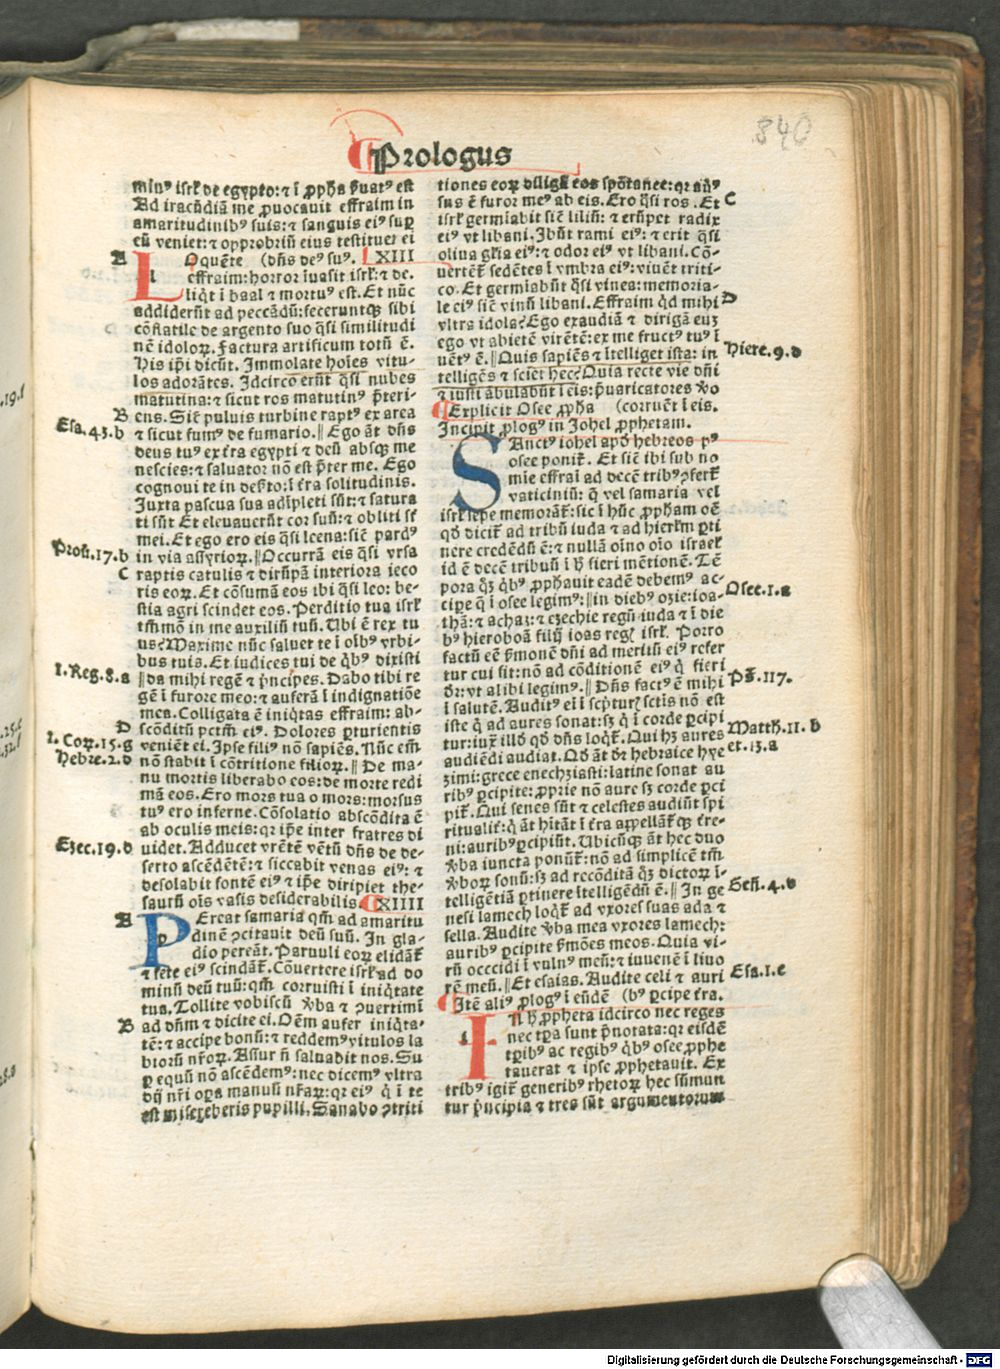 840
Prologus
minꝰ isrl̄ de egypto: ⁊ ī ꝓph̄a ẜuatꝰ est
Ad iracūdiā me ꝓuocauit effraim in
amaritudinibꝰ suis: ⁊ sanguis eiꝰ suꝑ
eū veniet: ⁊ opprobriū eius restituet ei
A
LOquēte (dn̄s deꝰ suꝰ. XIII
effraim: horror īuasit isrl̄: ⁊ de-
liq̄t ī baal ⁊ mortuꝰ est. Et nūc
addiderūt ad peccādū: feceruntqꝫ sibi
cōflatile de argento suo q̄si similitudi
nē idoloꝝ. Factura artificum totū ē.
His ip̄i dicūt. Immolate hoīes vitu-
los adorātes. Idcirco erūt q̄si nubes
matutina: ⁊ sicut ros matutinꝰ p̄teri-
B ens. Siē puluis turbine raptꝰ ex area
Esa. 43. b ⁊ sicut fumꝰ de fumario. ‖ Ego āt dn̄s
deus tuꝰ ex t̄ra egypti ⁊ deū absqꝫ me
nescies: ⁊ saluator nō est p̄ter me. Ego
cognoui te in deẜto: ī t̄ra solitudinis.
Iuxta pascua sua adīpleti sūt: ⁊ satura
ti sūt Et eleuauerūt cor suū: ⁊ obliti sſ
mei. Et ego ero eis q̄si leena: siē pardꝰ
Prou. 17. b in via assyrioꝝ. ‖ Occurrā eis q̄si vrsa
C raptis catulis ⁊ dirūpā interiora ieco
ris eoꝝ. Et cōsumā eos ibi q̄si leo: be-
stia agri scindet eos. Perditio tua isrl̄
tm̄mō in me auxiliū tuū. Ubi ē rex tu
us? Maxime nūc saluet te ī oībꝰ vrbi-
bus tuis. Et iudices tui de q̄bꝰ dixisti
I. Reg. 8. a ‖ da mihi regē ⁊ p̄ncipes. Dabo tibi re
gē ī furore meo: ⁊ auferā ī indignatiōe
mea. Colligata ē iniq̄tas effraim: ab-
D scōditū pctm̄ eiꝰ. Dolores ꝑturientis
I. Coꝝ. 15. g veniēt ei. Ipse filiꝰ nō sapiēs. Nūc em̄
Hebre. 2. d nō stabit ī cōtritione filioꝝ. ‖ De ma-
nu mortis liberabo eos: de morte redi
mā eos. Ero mors tua o mors: morsus
tuꝰ ero inferne. Cōsolatio abscōdita ē
ab oculis meis: qr ip̄e inter fratres di
Ezec. 19. d uidet. Adducet vrētē vētū dn̄s de de-
serto ascēdētē: ⁊ siccabit venas eiꝰ: ⁊
desolabit fontē eiꝰ ⁊ ip̄e diripiet the-
saurū oīs vasis desiderabilis. XIIII
A PEreat samaria qm̄ ad amaritu
dinē ꝯcitauit deū suū. In gla-
dio pereāt. Paruuli eoꝝ elidāt̄
⁊ fete eiꝰ scindāt̄. Cōuertere isrl̄ ad do
minū deū tuū: qm̄ corruisti ī iniq̄tate
tua. Tollite vobiscū v̄ba ⁊ ꝯuertimī
B ad dn̄m ⁊ dicite ei. Oēm aufer iniq̄ta-
tē: ⁊ accipe bonū: ⁊ reddemꝰ vitulos la
bioꝝ nr̄oꝝ. Assur n̄ saluabit nos. Su
ꝑ equū nō ascēdemꝰ: nec dicemꝰ vltra
dij nr̄i oꝑa manuū nr̄aꝝ: qr eiꝰ q̄ ī te
est misereberis pupilli. Sanabo ꝯtriti
tiones eoꝝ diligā eos spōtanee: qr aūꝰ
sus ē furor meꝰ ab eis. Ero q̄si ros. Et C
isrl̄ germiabit siē liliū: ⁊ erūpet radix
eiꝰ vt libani. Ibūt rami eiꝰ: ⁊ erit q̄si
oliua gl̄ia eiꝰ: ⁊ odor eiꝰ vt libani. Cō-
uertēt̄ sedētes ī vmbra eiꝰ: viuēt triti-
co. Et germiabūt q̄si vinea: memoria-
le eiꝰ siē vinū libani. Effraim q̄d mihi D
vltra idola? Ego exaudiā ⁊ dirigā euꝫ
ego vt abietē virētē: ex me fructꝰ tuꝰ ī
uētꝰ ē. ‖ Quis sapiēs ⁊ ītelliget ista: in Hiere. 9. d
telligēs ⁊ sciet hec? Quia recte vie dn̄i
⁊ iusti ābulabūt ī eis: p̄uaricatores v̄o
Explicit Osee ꝓph̄a (corruēt ī eis.
Incipit ꝓlogꝰ in Johel ꝓphetam.
SAnctꝰ iohel apd̄ hebreos pꝰ
osee ponit̄. Et siē ibi sub no
mie effrai ad decē tribꝰ ꝯfert̄
vaticiniū: q̄ vel samaria vel
isrl̄ sepe memorāt̄: sic ī hūc ꝓpham oē
qd̄ dicit̄ ad tribū iuda ⁊ ad hierl̄m ꝑti
nere credēdū ē: ⁊ nullā oīno oīo israel
id ē decē tribuū ī h̄ fieri mētionē. Tē
pora qꝫ q̄bꝰ ꝓphauit eadē debemꝰ ac-
cipe q̄ ī osee legimꝰ: ‖ in diebꝰ ozie: ioa- Osee. 1. a
thā: ⁊ achaz: ⁊ ezechie regū iuda ⁊ ī die
bꝰ hieroboā filij ioas regꝭ isrl̄. Porro
factū eē ẜmonē dn̄i ad meritū eiꝰ refer
tur cui fit: nō ad cōditionē eiꝰ q̄ fieri
dr̄: vt alibi legimꝰ. ‖ Dn̄s factꝰ ē mihi Ps̄. 117.
ī salutē. Auditꝰ ei ī scpturꝭ sctis nō est
iste q̄ ad aures sonat: sꝫ q̄ ī corde ꝑcipi
tur: iux̄ illd̄ qd̄ dn̄s loq̄t̄. Qui hꝫ aures Matth. 11. b
audiēdi audiat. Qd̄ āt dr̄ hebraice hye et. 13. a
zimi: grece enechziasti: latine sonat au
ribꝰ ꝑcipite: ꝓprie nō aure sꝫ corde ꝑci
pit̄. Qui senes sūt ⁊ celestes audiūt spi
ritualit̄: q̄ āt hītāt ī t̄ra appellāt̄qꝫ t̄re-
ni: auribꝰ ꝑcipiūt. Ubicūqꝫ āt hec duo
v̄ba iuncta ponūt̄: nō ad simplicē tm̄
v̄boꝝ sonū: sꝫ ad recōditā qꝫ dictoꝝ ī-
telligētiā ꝑtinere ītelligēdū ē. ‖ In ge Gen̄. 4. d
nesi lamech loq̄t̄ ad vxores suas ada ⁊
sella. Audite v̄ba mea vxores lamech:
auribꝰ ꝑcipite ẜmōes meos. Quia vi-
rū occidi ī vulnꝰ meū: ⁊ iuuenē ī liuo
rē meū. ‖ Et esaias. Audite celi ⁊ auri Esa. 1. e
Itē aliꝰ ꝓlogꝰ ī eūdē (bꝰ ꝑcipe t̄ra.
IN h̄ ꝓpheta idcirco nec reges
nec tꝑa sunt p̄notata: qr eisdē
tꝑibꝰ ac regibꝰ q̄bꝰ osee ꝓphe
tauerat ⁊ ipse ꝓphetauit. Ex
tribꝰ igit̄ generibꝰ rhetoꝝ hec sūmun
tur p̄ncipia ⁊ tres sūt argumentorum
Digitalisierung gefördert durch die Deutsche Forschungsgemeinschaft - DFG